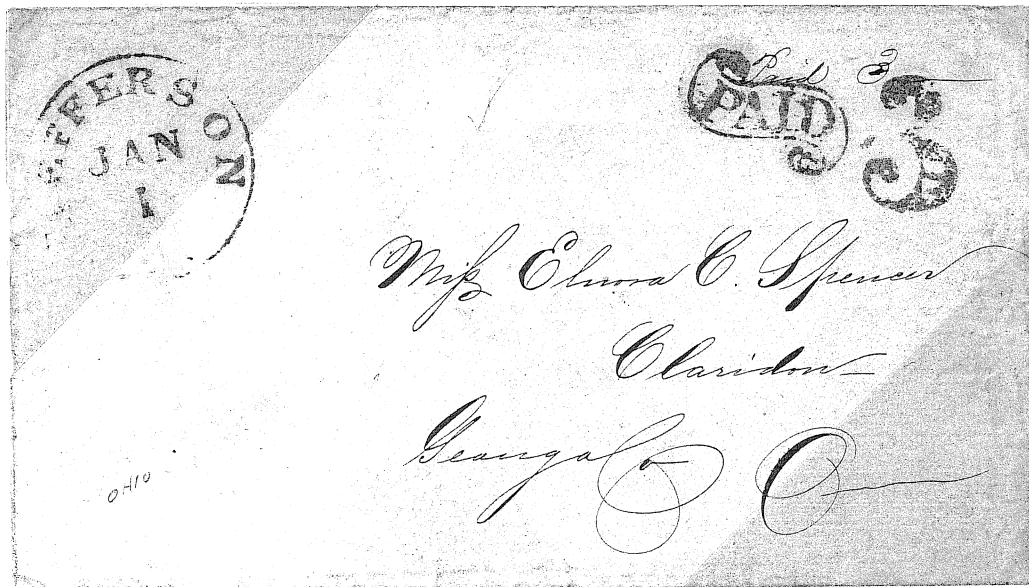 JEFFERSON
JAN
1
Paid 3
PAID
3
Miss Elnora C. Spencer
Claridon
Geauga Co O
OHIO